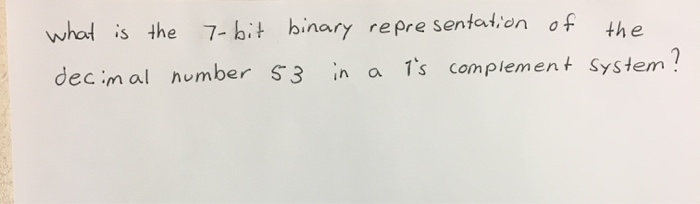 what is the 7-bit binary representation of the
decimal number 53 in a 1's complement system?